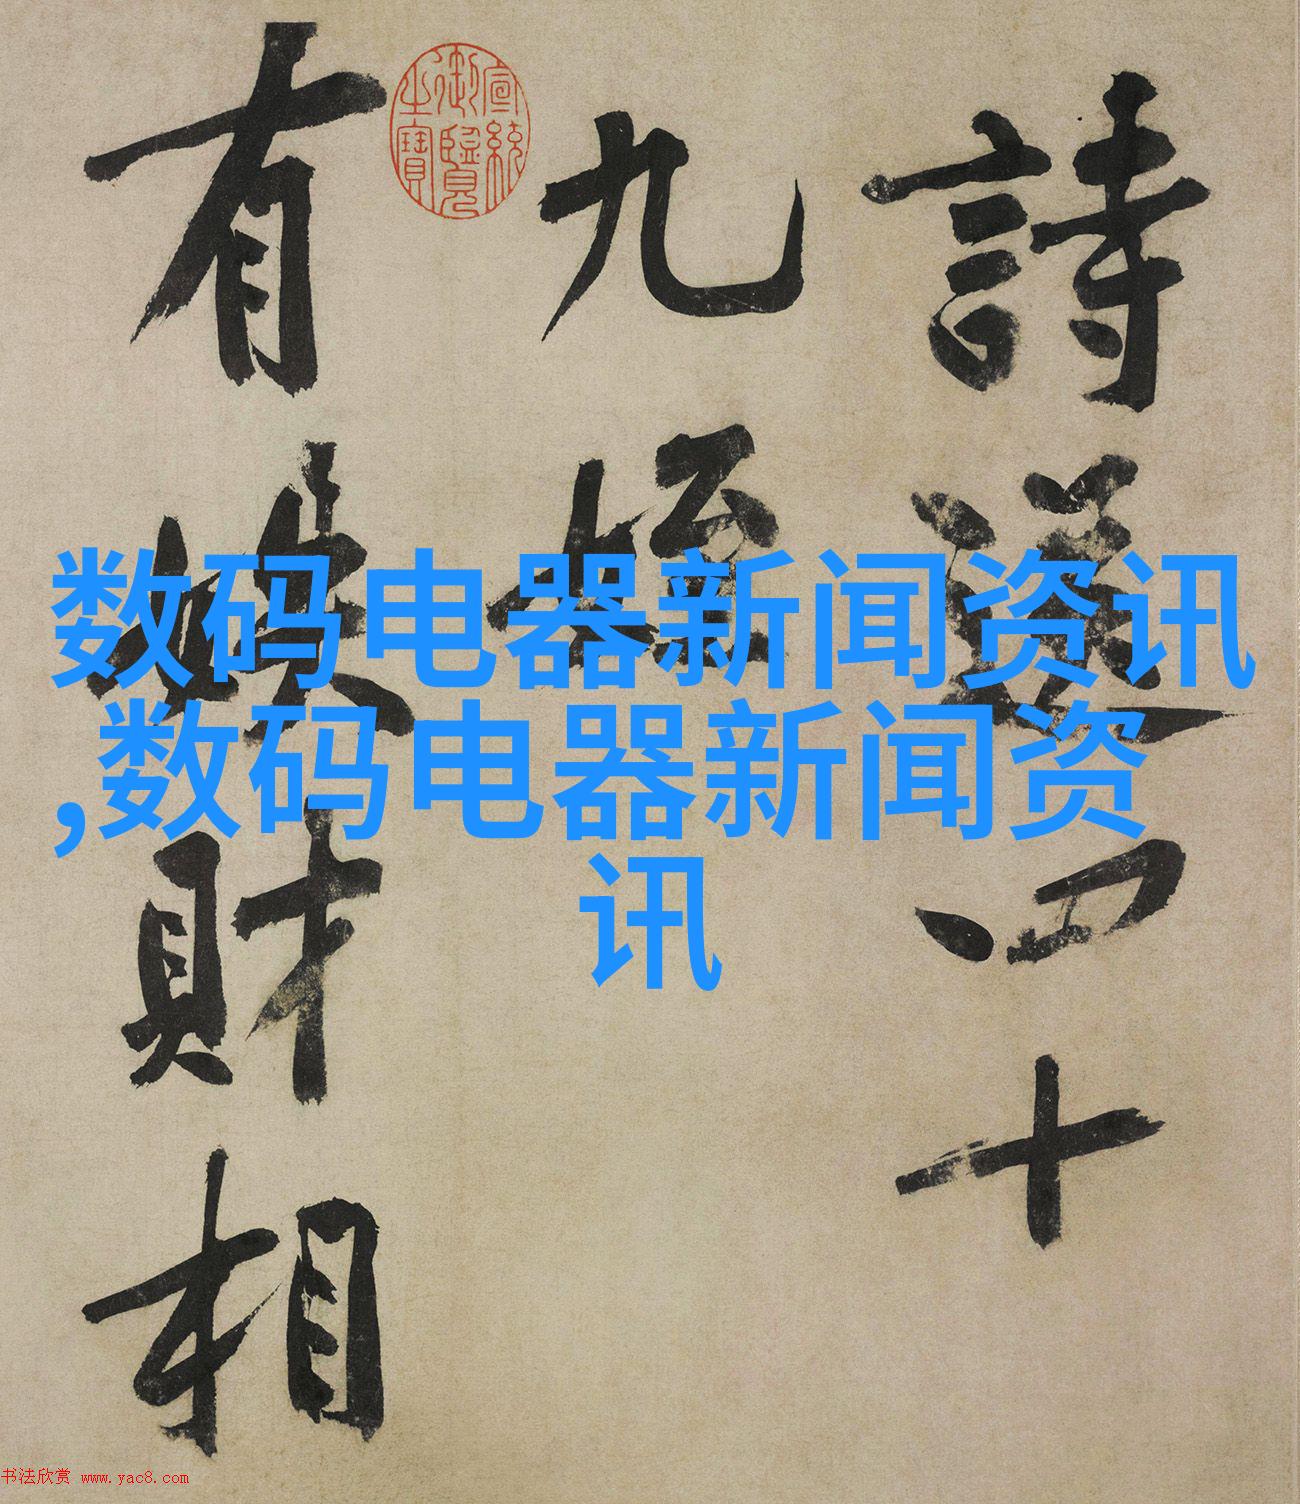 詩送四十
九姪
有財相
宣統
御覽
之寶
数码电器新闻资讯
,数码电器新闻资
讯
书法欣赏 www.yac8.com